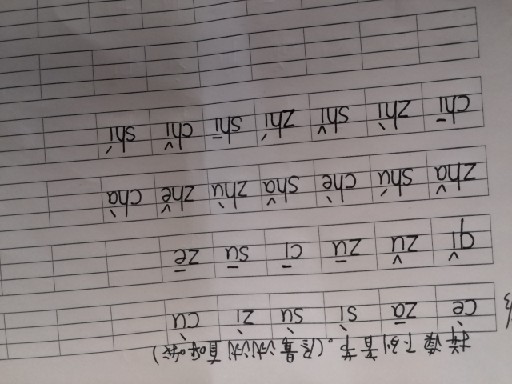 拼读下列音节。
cè zā sì sù zì cù
qǐ zǔ zū cī sū zē
zhǎ shú chè shǎ zhù zhě chà
chī zhì shǐ zhí shī chǐ shí